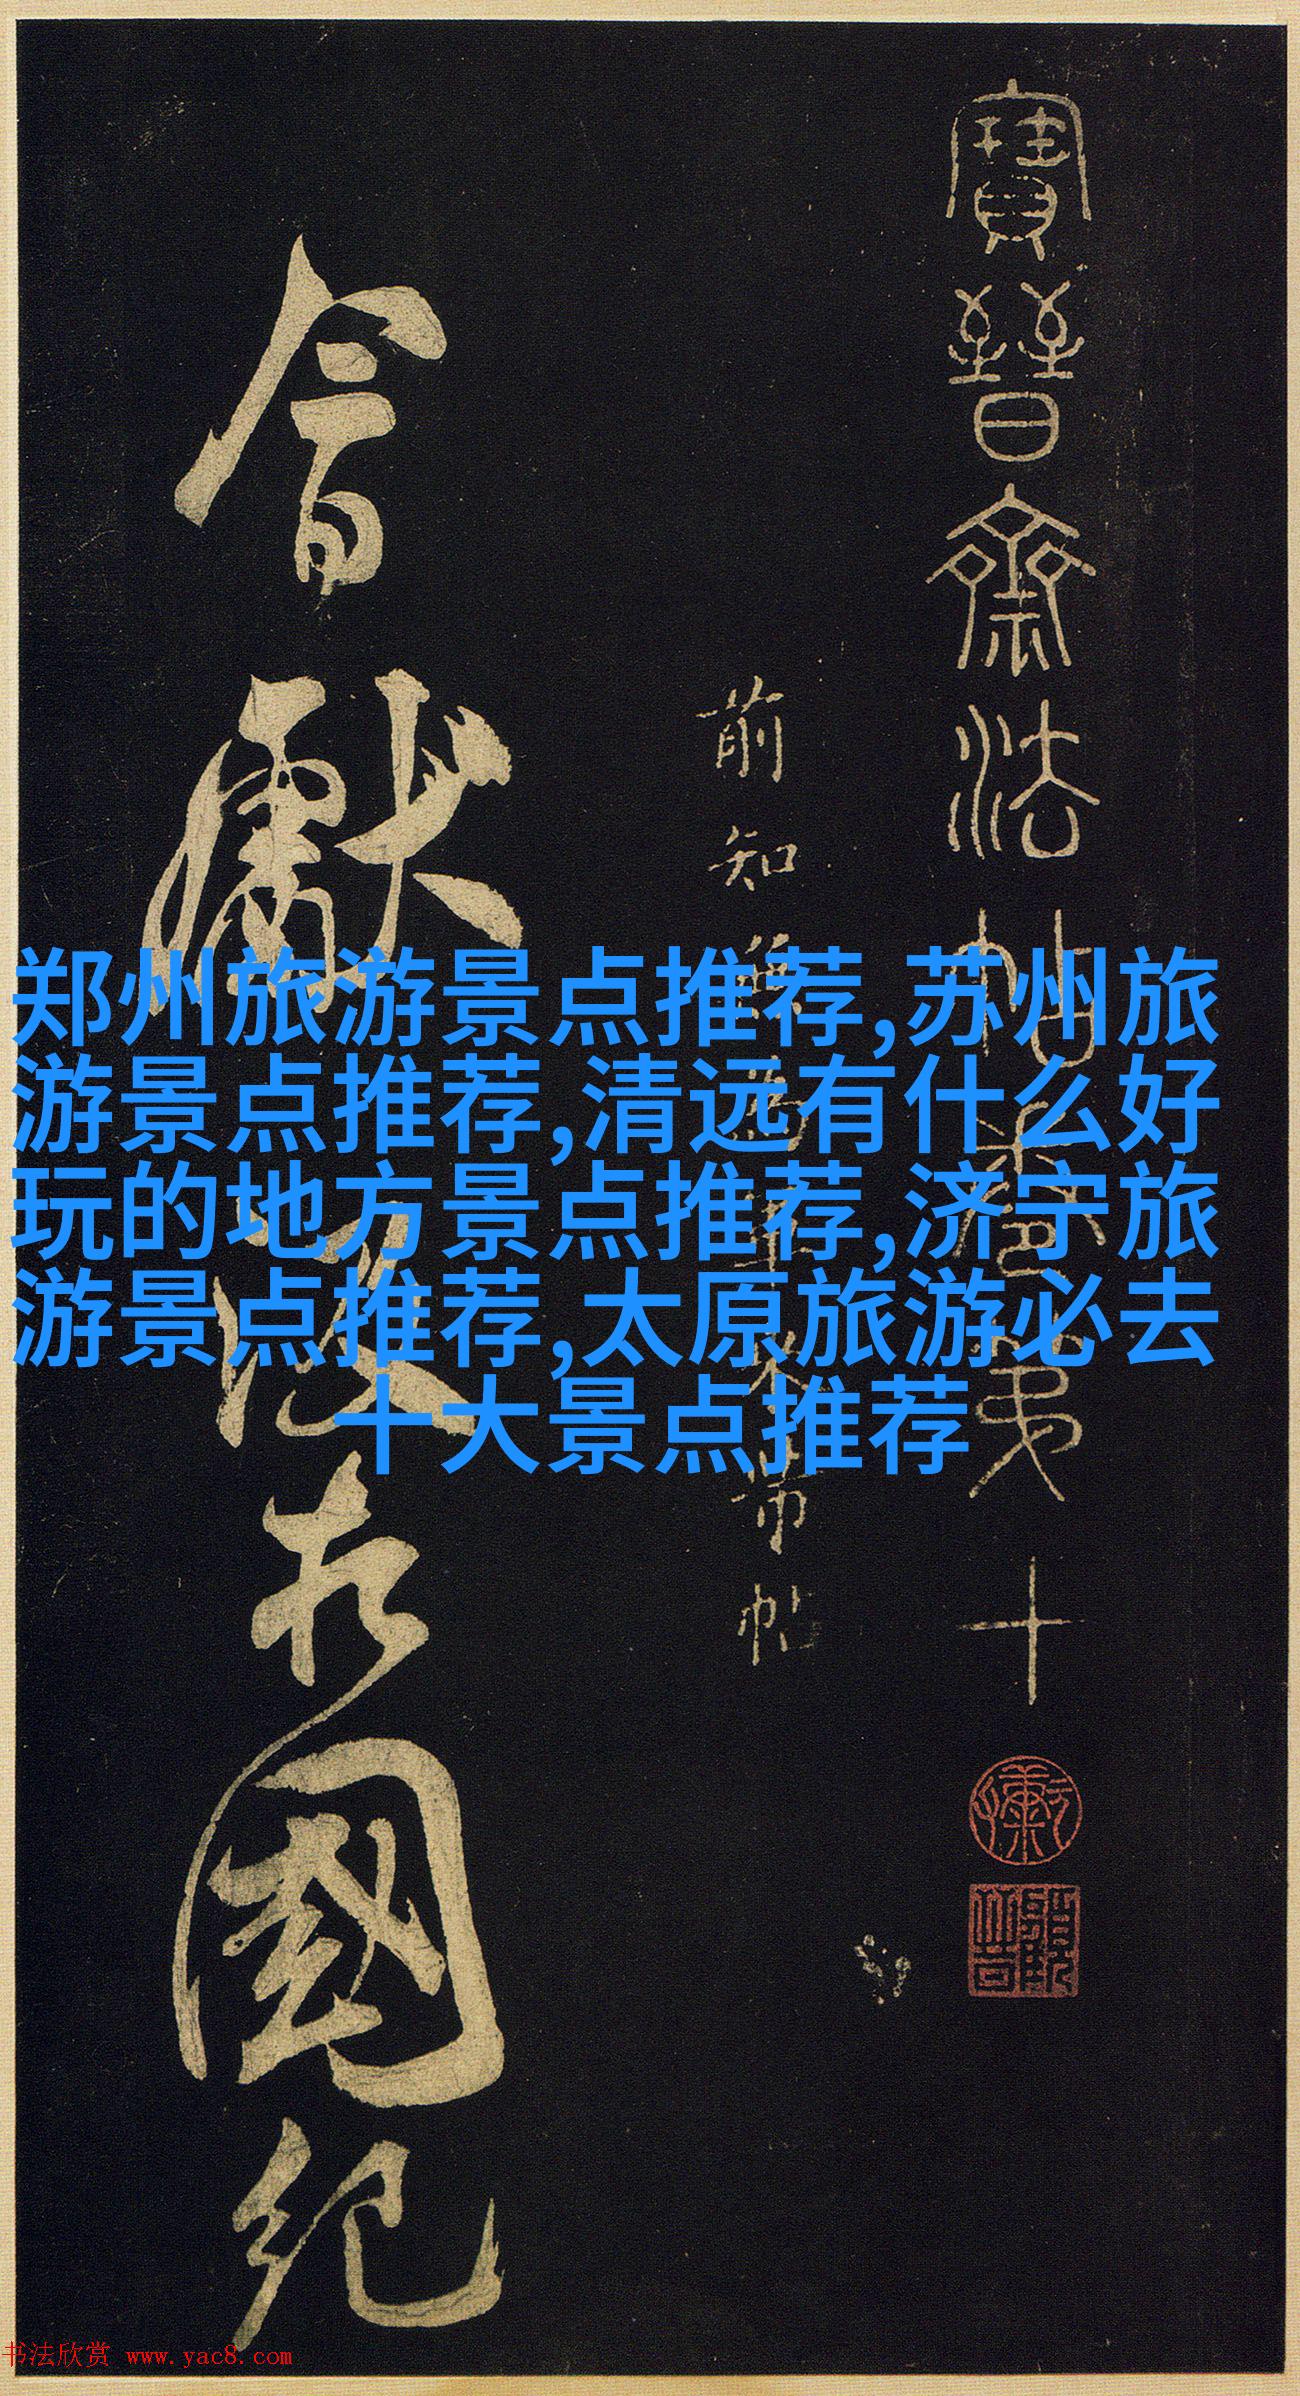 寶晉齋法帖卷第十
前知無為軍米芾帖
會獻
於國紀
郑州旅游景点推荐,苏州旅
游景点推荐,清远有什么好
玩的地方景点推荐,济宁旅
游景点推荐,太原旅游必去
十大景点推荐
书法欣赏 www.yac8.com